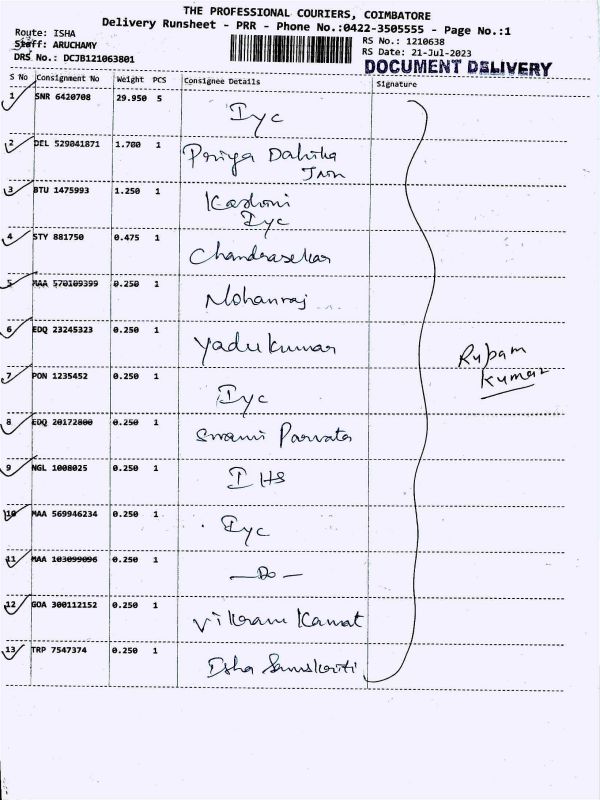 THE PROFESSIONAL COURIERS, COIMBATORE
Delivery Runsheet - PRR - Phone No.:0422-3505555 - Page No.:1
Route: ISHA RS No.: 1210638
Staff: ARUCHAMY RS Date: 21-Jul-2023
DRS No.: DCJB121063801 DOCUMENT DELIVERY
S No Consignment No Weight PCS Consignee Details Signature
1 SNR 6420708 29.950 5
Iyc
2 DEL 529041871 1.700 1
Priya Dahika
3 BTU 1475993 1.250 1
Iyc
4 STY 881750 0.475 1
Chandrasekar
5 MAA 570109399 0.250 1
Mohanraj
6 EDQ 23245323 0.250 1
Yadukumar
Rupam
Kumar
7 PON 1235452 0.250 1
Iyc
8 EDQ 20172800 0.250 1
Swami Parvata
9 NGL 1008025 0.250 1
IHS
10 MAA 569946234 0.250 1
Iyc
11 MAA 103099096 0.250 1
— Do —
12 GOA 300112152 0.250 1
Vikram Kamat
13 TRP 7547374 0.250 1
Isha Samskriti